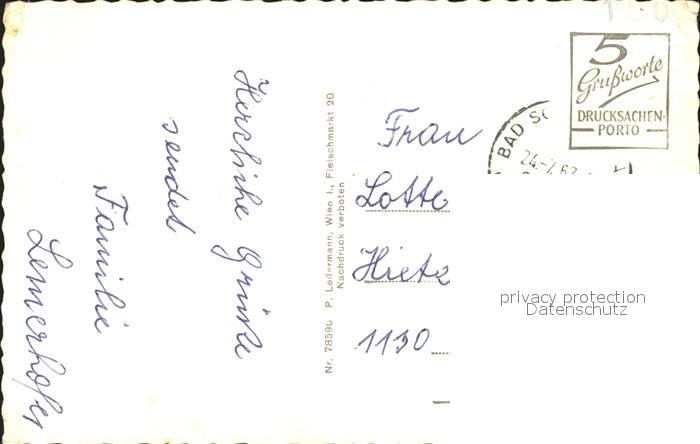 Herzliche Grüße
sendet
Familie
Lemerhofer
Nr. 78590 P. Ledermann, Wien I., Fleischmarkt 20
Nachdruck verboten
Frau
Lotte
Hietz
1130
5
Grußworte
DRUCKSACHEN-
PORTO
BAD SC
privacy protection
Datenschutz